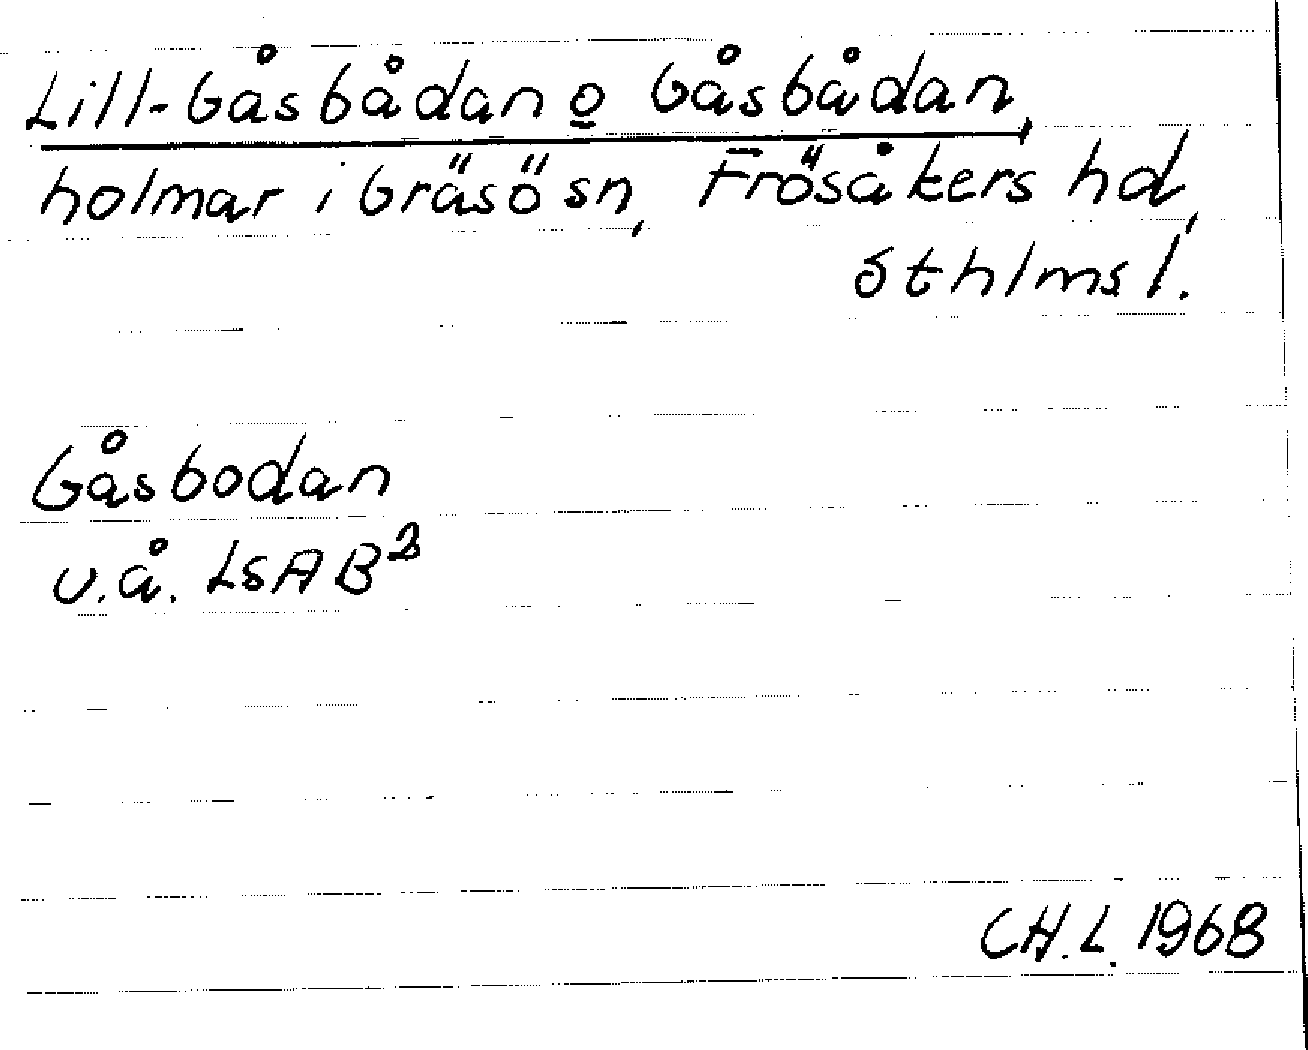 Lill-Gåsbådan o Gåsbådan,
holmar i Gräsö sn, Frösåkers hd,
Sthlms l.
Gåsbodan
u.å. LSA B²
CH.L. 1968